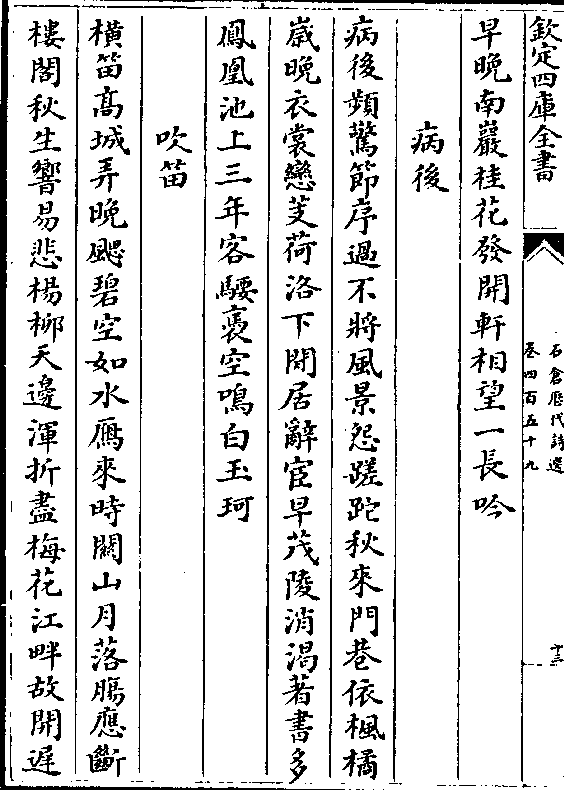 欽定四庫全書
石倉歴代詩選
卷四百五十九
十三
早晩南巖桂花發開軒相望一長吟
病後
病後頻驚節序過不將風景怨蹉跎秋來門巷依楓橘
歳晩衣裳戀芰荷洛下閒居辭宦早茂陵消渇著書多
鳳凰池上三年客騕褭空鳴白玉珂
吹笛
横笛髙城弄晩颸碧空如水鴈來時關山月落膓應斷
樓閣秋生響易悲楊柳天邊渾折盡梅花江畔故開遲